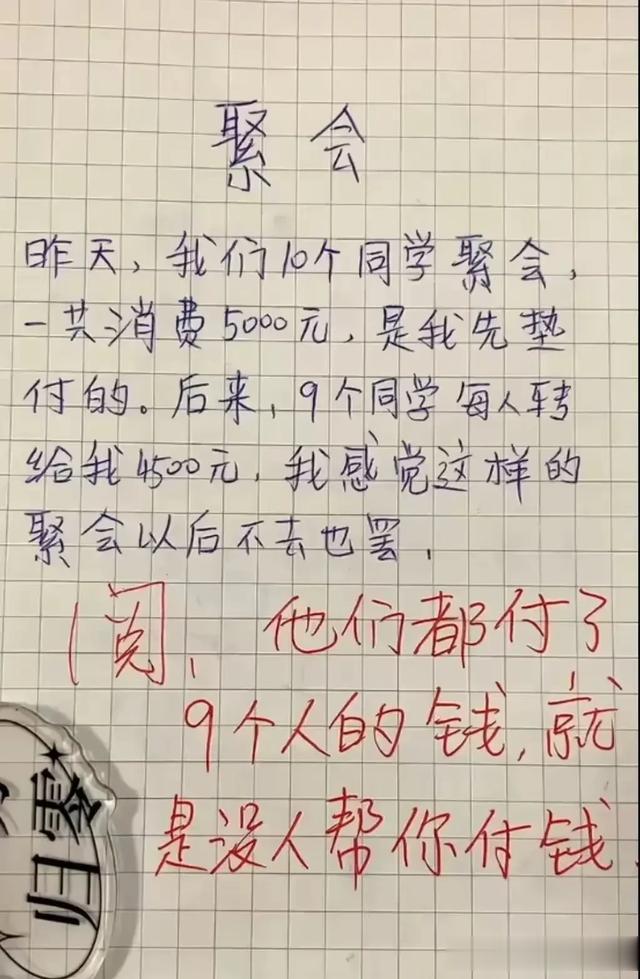 聚会
昨天，我们10个同学聚会，
一共消费5000元，是我先垫
付的。后来，9个同学每人转
给我4500元，我感觉这样的
聚会以后不去也罢．
阅、他们都付了
9个人的钱，就
是没人帮你付钱．
归零